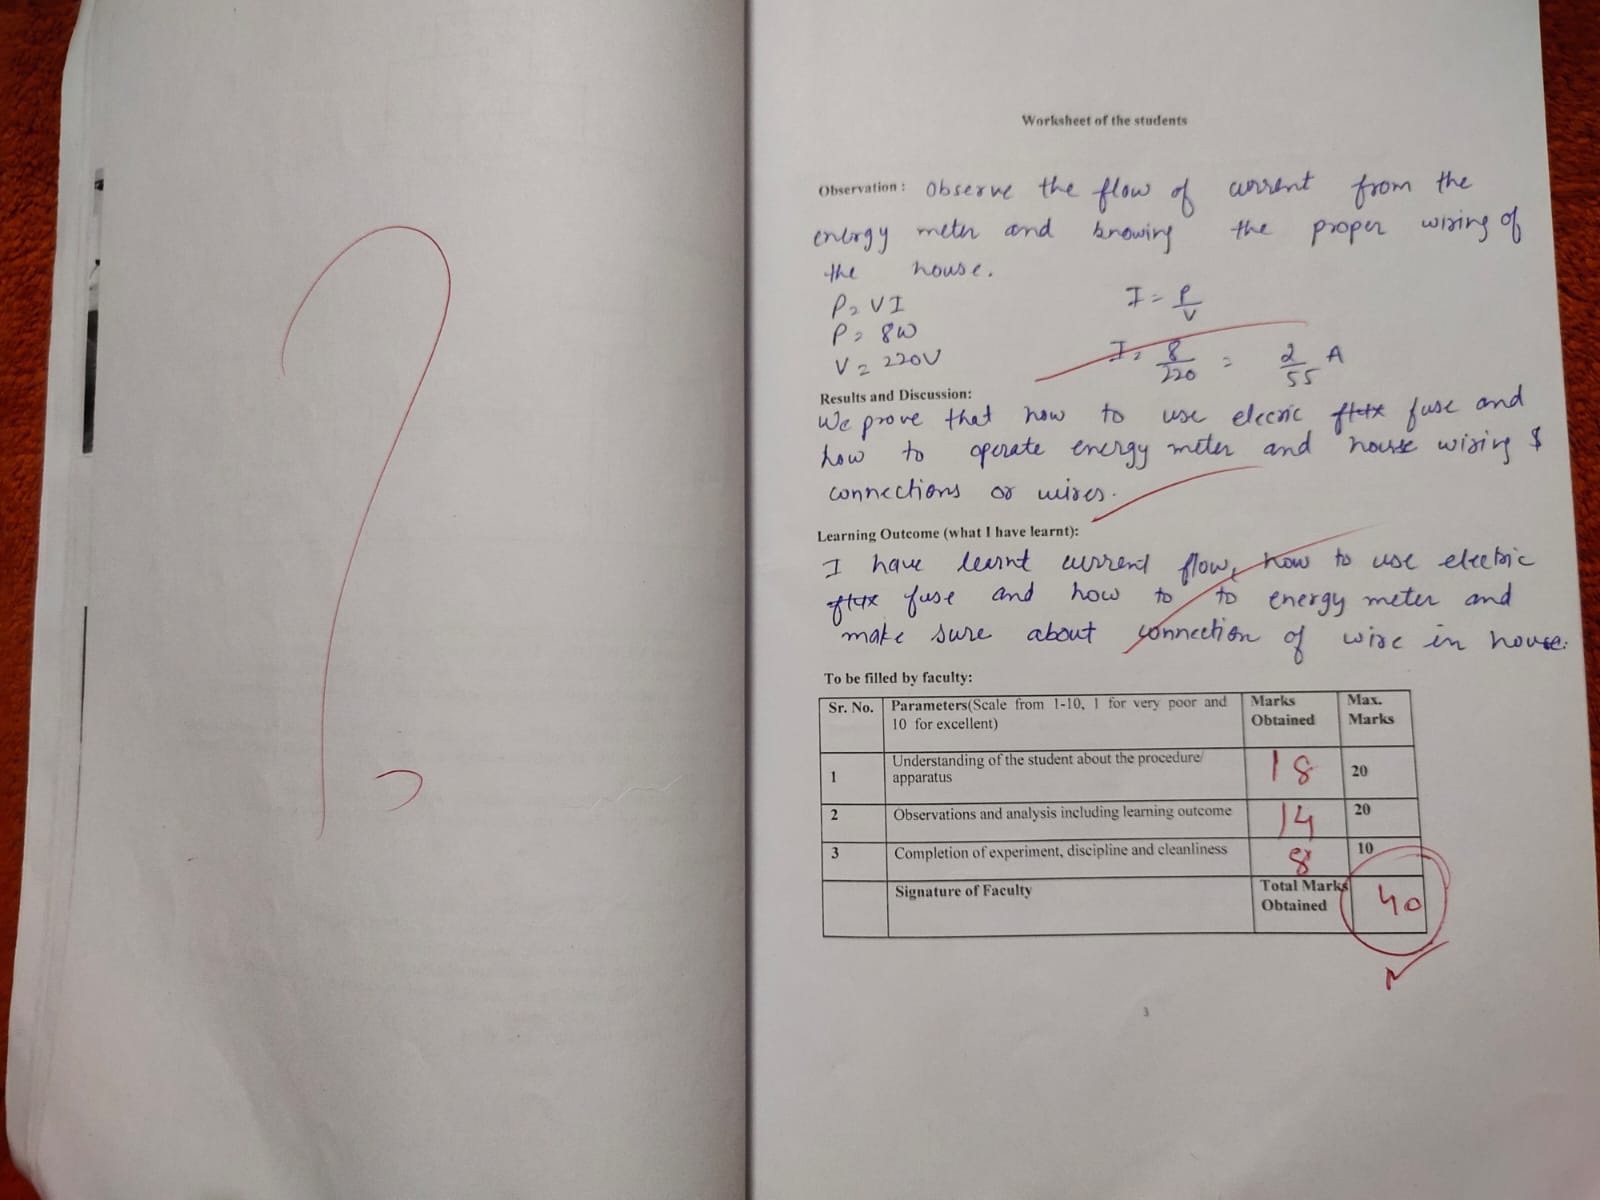 Worksheet of the students
Observation : Observe the flow of current from the
energy meter and knowing the proper wiring of
the house.
P = VI I = P/V
P = 8W
V = 220V I = 8/220 = 2/55 A
Results and Discussion:
We prove that how to use elecric flux fuse and
how to operate energy meter and house wiring $
connections or wires.
Learning Outcome (what I have learnt):
I have learnt current flow, how to use electric
flux fuse and how to to energy meter and
make sure about connection of wire in house.
To be filled by faculty:
Sr. No. Parameters(Scale from 1-10, 1 for very poor and Marks Max.
10 for excellent) Obtained Marks
1 Understanding of the student about the procedure/ 18 20
apparatus
2 Observations and analysis including learning outcome 14 20
3 Completion of experiment, discipline and cleanliness 8 10
Signature of Faculty Total Marks 40
Obtained
3